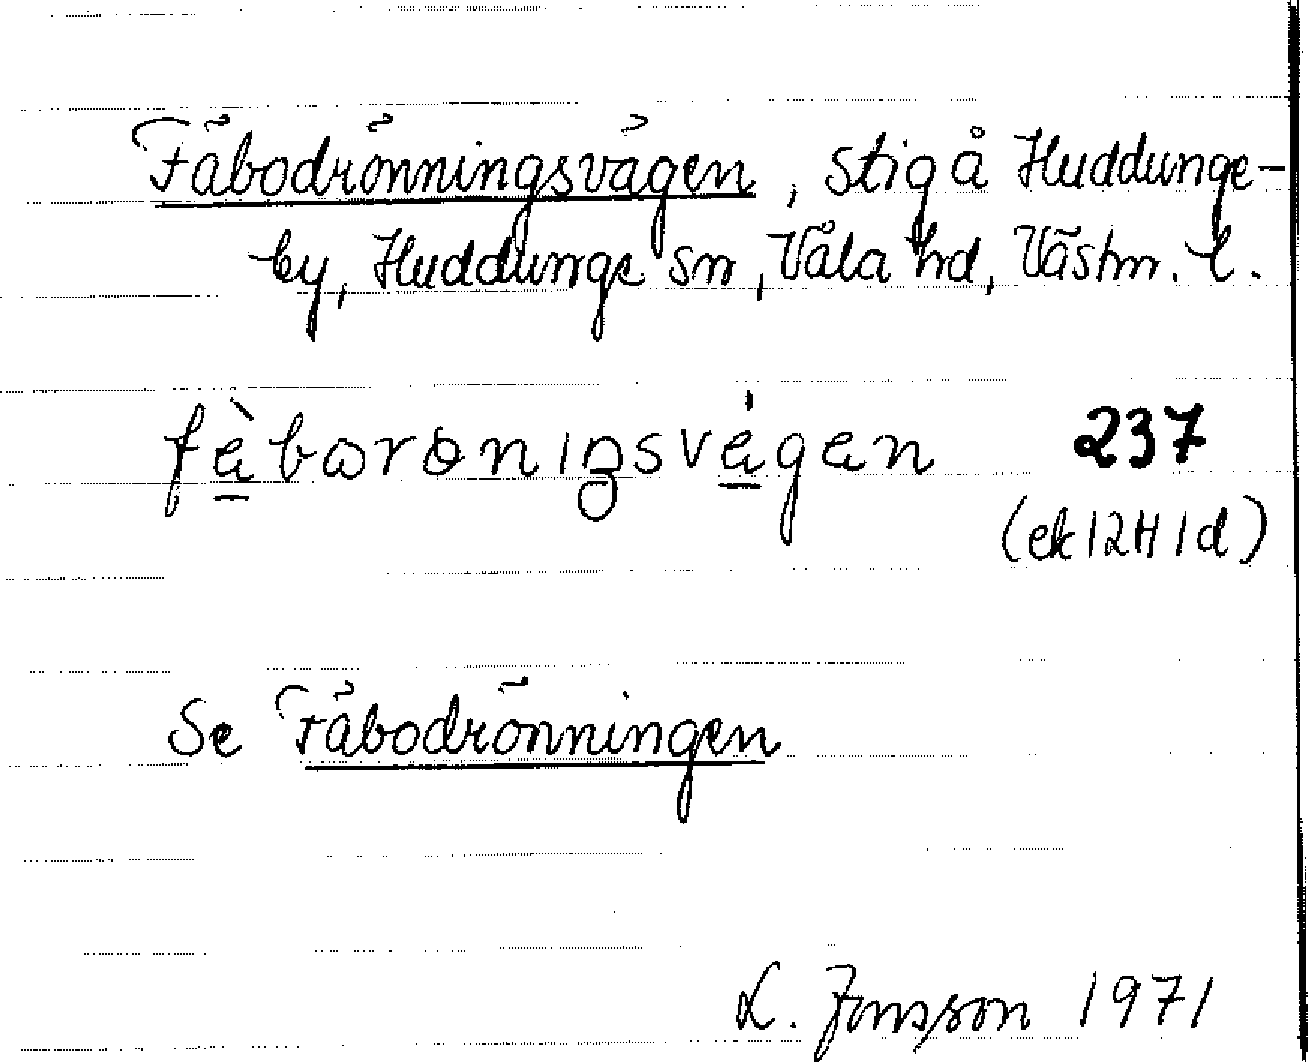 Fäbodrönningsvägen, stig å Huddunge-
by, Huddunge sn, Våla hd, Västm. l.
fàbωrɵnıŋsvágan 237
(ek 12H 1d)
Se Fäbodrönningen
L. Jonsson 1971